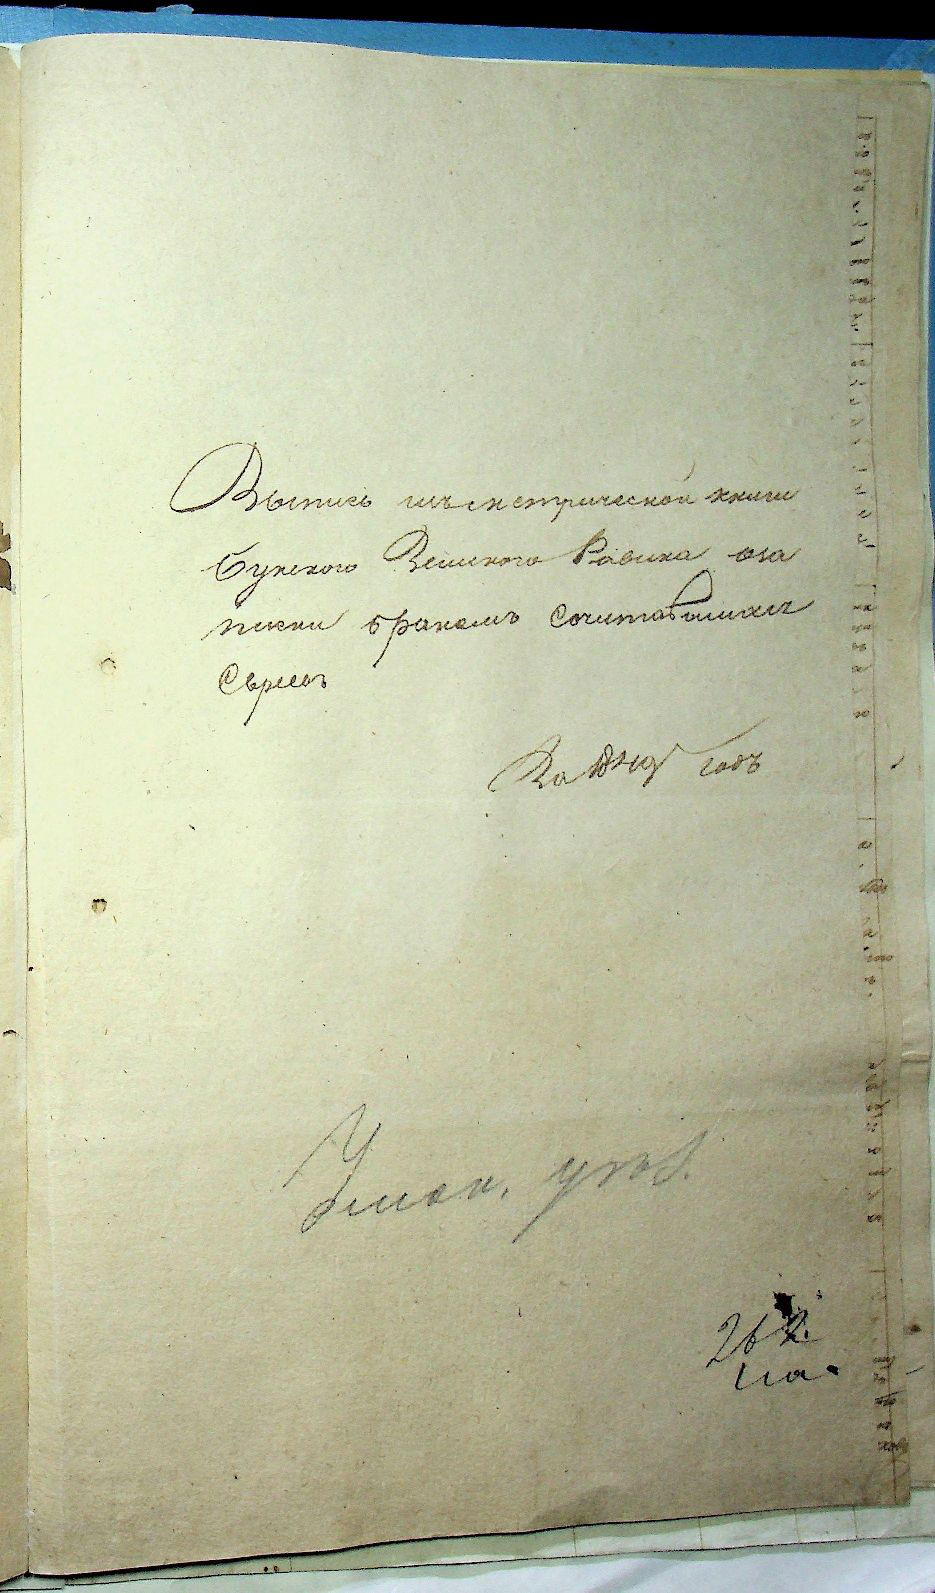 Выпись изъ метрической книги
Букского Земского Равина о за
писки бракомъ сочитавшихся
Евреевъ
За годъ
Уман. уѣзд.
на